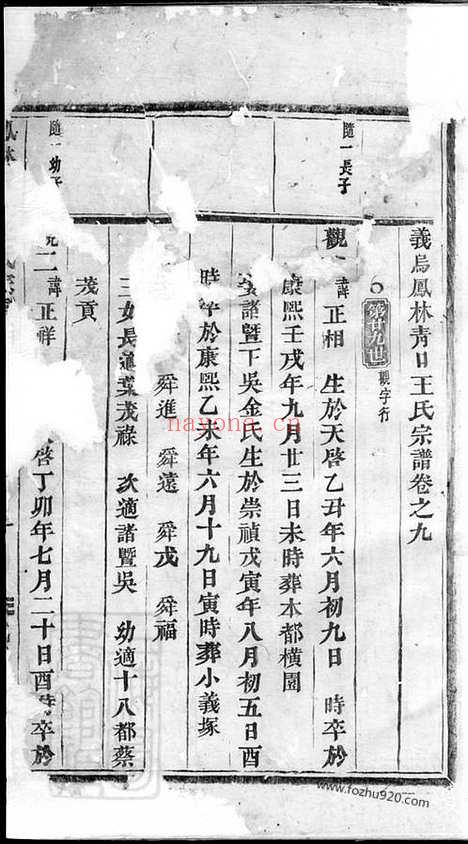 義烏鳳林青口王氏宗譜卷之九
第廿九世 觀字行
隨一長子
觀 諱正相 生於天啓乙丑年六月初九日 時卒於
康熙壬戌年九月廿三日未時葬本都橫園
諸暨下吳金氏生於崇禎戊寅年八月初五日酉
時卒於康熙乙未年六月十九日寅時葬小義塚
舜進 舜遠 舜戊 舜福
三女長適葉茂祿 次適諸暨吳 幼適十八都蔡
茂貢
隨一幼子
二 諱正祥 啓丁卯年七月二十日酉時卒於
nayona.cn
www.fozhu920.com